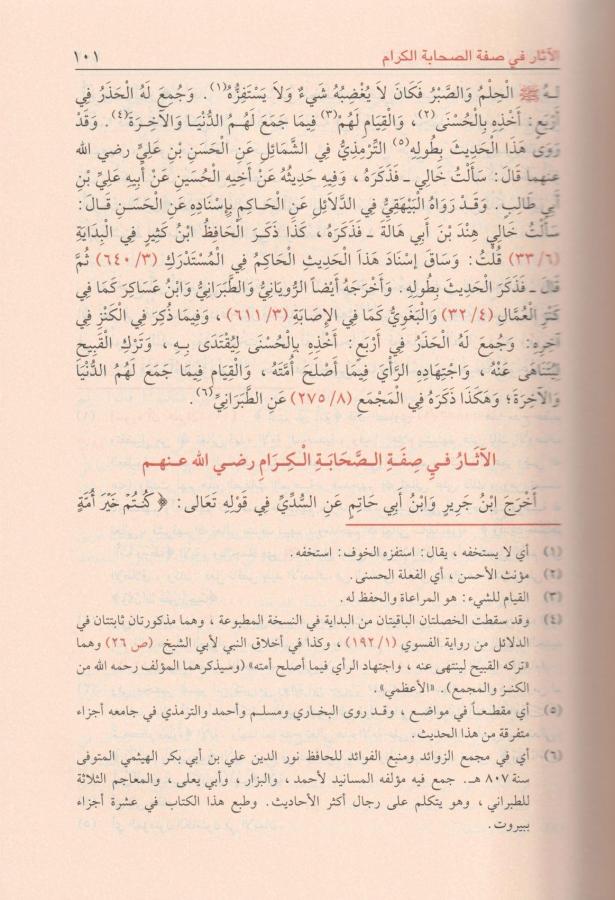 الآثار في صفة الصحابة الكرام ١٠١
لَهُ ﷺ الْحِلْمُ وَالصَّبْرُ فَكَانَ لَا يُغْضِبُهُ شَيْءٌ وَلَا يَسْتَفِزُّهُ(١). وَجُمِعَ لَهُ الْحَذَرُ فِي
أَرْبَعٍ: أَخْذِهِ بِالْحُسْنَى(٢)، وَالْقِيَامِ لَهُمْ(٣) فِيمَا جَمَعَ لَهُمُ الدُّنْيَا وَالآخِرَةَ(٤). وَقَدْ
رَوَى هَذَا الْحَدِيثَ بِطُولِهِ(٥) التِّرْمِذِيُّ فِي الشَّمَائِلِ عَنِ الْحَسَنِ بْنِ عَلِيٍّ رضي الله
عنهما قَالَ: سَأَلْتُ خَالِي ـ فَذَكَرَهُ، وَفِيهِ حَدِيثُهُ عَنْ أَخِيهِ الْحُسَيْنِ عَنْ أَبِيهِ عَلِيِّ بْنِ
أَبِي طَالِبٍ. وَقَدْ رَوَاهُ الْبَيْهَقِيُّ فِي الدَّلَائِلِ عَنِ الْحَاكِمِ بِإِسْنَادِهِ عَنِ الْحَسَنِ قَالَ:
سَأَلْتُ خَالِي هِنْدَ بْنَ أَبِي هَالَةَ ـ فَذَكَرَهُ، كَذَا ذَكَرَ الْحَافِظُ ابْنُ كَثِيرٍ فِي الْبِدَايَةِ
(٦/ ٣٣) قُلْتُ: وَسَاقَ إِسْنَادَ هَذَا الْحَدِيثِ الْحَاكِمُ فِي الْمُسْتَدْرَكِ (٣/ ٦٤٠) ثُمَّ
قَالَ ـ فَذَكَرَ الْحَدِيثَ بِطُولِهِ. وَأَخْرَجَهُ أَيْضاً الرُّويَانِيُّ وَالطَّبَرَانِيُّ وَابْنُ عَسَاكِرَ كَمَا فِي
كَنْزِ الْعُمَّالِ (٤/ ٣٢) وَالْبَغَوِيُّ كَمَا فِي الإِصَابَةِ (٣/ ٦١١)، وَفِيمَا ذُكِرَ فِي الْكَنْزِ فِي
آخِرِهِ: وَجُمِعَ لَهُ الْحَذَرُ فِي أَرْبَعٍ: أَخْذِهِ بِالْحُسْنَى لِيُقْتَدَى بِهِ، وَتَرْكِ الْقَبِيحِ
لِيُتَنَاهَى عَنْهُ، وَاجْتِهَادِهِ الرَّأْيَ فِيمَا أَصْلَحَ أُمَّتَهُ، وَالْقِيَامِ فِيمَا جَمَعَ لَهُمُ الدُّنْيَا
وَالآخِرَةَ؛ وَهكَذَا ذَكَرَهُ فِي الْمَجْمَعِ (٨/ ٢٧٥) عَنِ الطَّبَرَانِيِّ(٦).
الآثَارُ فِي صِفَةِ الصَّحَابَةِ الْكِرَامِ رضي الله عنهم
أَخْرَجَ ابْنُ جَرِيرٍ وَابْنُ أَبِي حَاتِمٍ عَنِ السُّدِّيِّ فِي قَوْلِهِ تَعَالَى: ﴿ كُنتُمْ خَيْرَ أُمَّةٍ
(١) أي لا يستخفه، يقال: استفزه الخوف: استخفه.
(٢) مؤنث الأحسن، أي الفعلة الحسنى.
(٣) القيام للشيء: هو المراعاة والحفظ له.
(٤) وقد سقطت الخصلتان الباقيتان من البداية في النسخة المطبوعة، وهما مذكورتان ثابتتان في
الدلائل من رواية الفسوي (١/ ١٩٢)، وكذا في أخلاق النبي لأبي الشيخ (ص ٢٦) وهما
«تركه القبيح لينتهى عنه، واجتهاد الرأي فيما أصلح أمته» (وسيذكرهما المؤلف رحمه الله من
الكنز والمجمع). «الأعظمي».
(٥) أي مقطعاً في مواضع، وقد روى البخاري ومسلم وأحمد والترمذي في جامعه أجزاء
متفرقة من هذا الحديث.
(٦) أي في مجمع الزوائد ومنبع الفوائد للحافظ نور الدين علي بن أبي بكر الهيثمي المتوفى
سنة ٨٠٧ هـ. جمع فيه مؤلفه المسانيد لأحمد، والبزار، وأبي يعلى، والمعاجم الثلاثة
للطبراني، وهو يتكلم على رجال أكثر الأحاديث. وطبع هذا الكتاب في عشرة أجزاء
ببيروت.